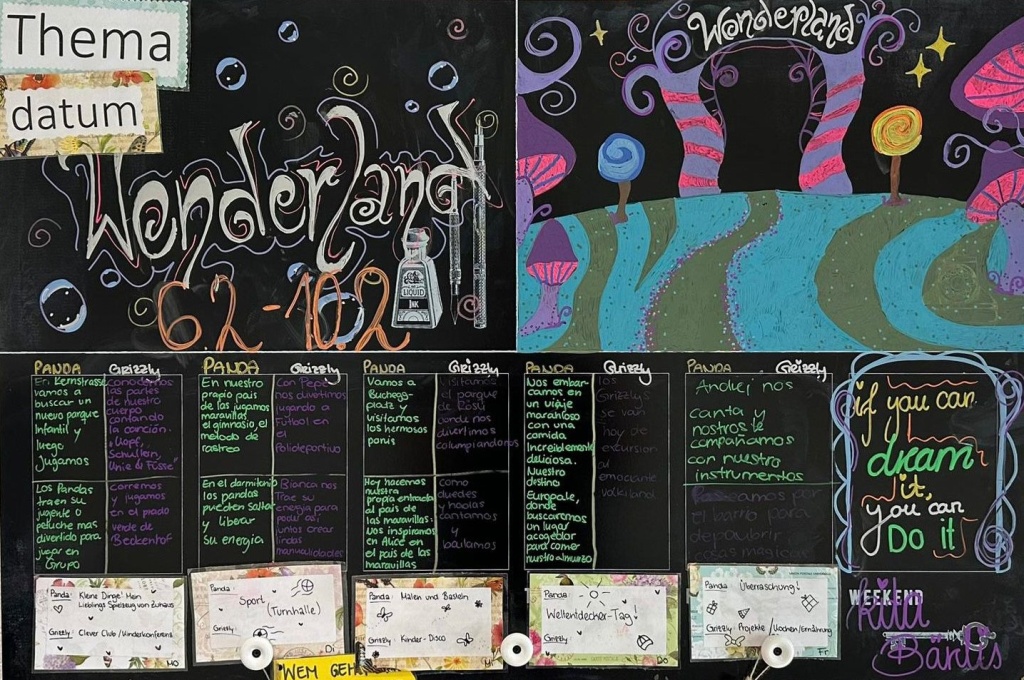 Thema
datum
Wonderland
6.2 - 10.2
LIQUID
INK
Wonderland
PANDA
Grizzly
En Kernstrasse
vamos a
buscar un
nuevo parque
Infantil y
luego
Jugamos
conocemos
las partes
de nuestro
cuerpo
cantando
la canción.
"Kopf,
Schultern,
Knie & Füsse"
Los Pandas
traen su
jugente o
peluche mas
divertido para
jugar en
Grupo
corremos
y jugamos
en el prado
verde de
Beckenhof
PANDA
Grizzly
En nuestro
propio pais
de las jugamos
maravillas
el gimnasio, el
metodo de
rastreo
con Pepe
nos divertimos
jugando a
Fútbol en
el
Polideportivo
En el darmitorio
los pandas
pueden saltar
y liberar
su energia
Bianca nos
trae su
energia para
poder asi
juntos crear
lindas
manualidades
PANDA
Grizzly
Vamos a
Bucheggplatz
y
visitamos
los hermosos
ponis
visitamos
el parque
de Rosu
donde nos
divertimos
columpiandonos
Hoy hacemos
nuestra
propia entrada
al pais de
las maravillas:
Nos inspiramos
en Alice en el
pais de las
maravillas
como
duedes
y hadas
cantamos
y
bailamos
PANDA
Grizzly
Nos embarcamos
en un
viaje
maravilloso
con una
comida
Increiblemente
deliciosa.
Nuestro
destino
Europale,
donde
buscaremos
un lugar
acogeblor
para comer
nuestro almuerzo
los
Grizzlys
se van
hoy de
excursion
al
emocionante
Vokiland
PANDA
Grizzly
Andrej nos
canta y
nostros le
compañamos
con nuestro
instrumentos
Paseamos por
el barrio para
descubrir
cosas magicas
if you can
dream
it,
you can
Do it
Panda: Kleine Dinge! Mein
Lieblings Spielzeug von Zuhaus
Grizzly: Clever Club / Kinderkonferenz
Mo
Panda: Sport
(Turnhalle)
Grizzly:
Di
Panda: Malen und Basteln
Grizzly: Kinder-Disco
Mi
Panda:
Weltentdecher-Tag!
Grizzly:
Do
Panda: Überraschung!
Grizzly: Projekte / Kochen/Ernährung
Fr
WEEKEND
kita
Bärlis
WEM GEH